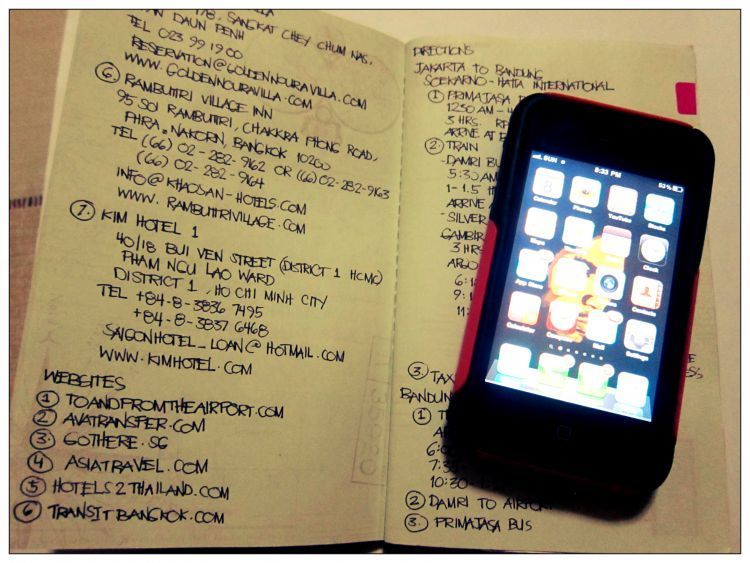 178, SANGKAT CHEY CHUM NAS,
DAUN PENH
TEL 023 99 19 00
RESERVATION@GOLDENNOURAVILLA.COM
WWW.GOLDENNOURAVILLA.COM
6. RAMBUTTRI VILLAGE INN
95 SOI RAMBUTTRI, CHAKKRA PHONG ROAD,
PHRA-NAKORN, BANGKOK 10200
TEL (66) 02-282-9162 OR (66) 02-282-9163
(66) 02-282-9164
INFO@KHAOSAN-HOTELS.COM
WWW.RAMBUTTRIVILLAGE.COM
7. KIM HOTEL 1
40/18 BUI VEN STREET (DISTRICT 1 HCMC)
PHAM NGU LAO WARD
DISTRICT 1, HO CHI MINH CITY
TEL +84-8-3836 7495
+84-8-3837 6468
SAIGONHOTEL_LOAN@HOTMAIL.COM
WWW.KIMHOTEL.COM
WEBSITES
1 TOANDFROMTHEAIRPORT.COM
2 AVATRANSFER.COM
3. GOTHERE.SG
4 ASIATRAVEL.COM
5 HOTELS2THAILAND.COM
6 TRANSITBANGKOK.COM
DIRECTIONS
JAKARTA TO BANDUNG
SOEKARNO-HATTA INTERNATIONAL
1 PRIMAJASA
1230 AM -
3 HRS. RP
ARRIVE AT
2 TRAIN
-DAMRI BU
5:30 AM
1-1.5 H
ARRIVE
-SILVER
GAMBIR
3 HRS
ARGO
6:
9:
11:
3. TAX
BANDUN
1 T
6:0
7:3
10:30
2 DAMRI TO AIRPORT
3. PRIMAJASA BUS
SUN
8:33 PM
53%
Calendar
Photos
YouTube
Stocks
Maps
Clock
App Store
Contacts
Calculator
Compass
Mail
Settings